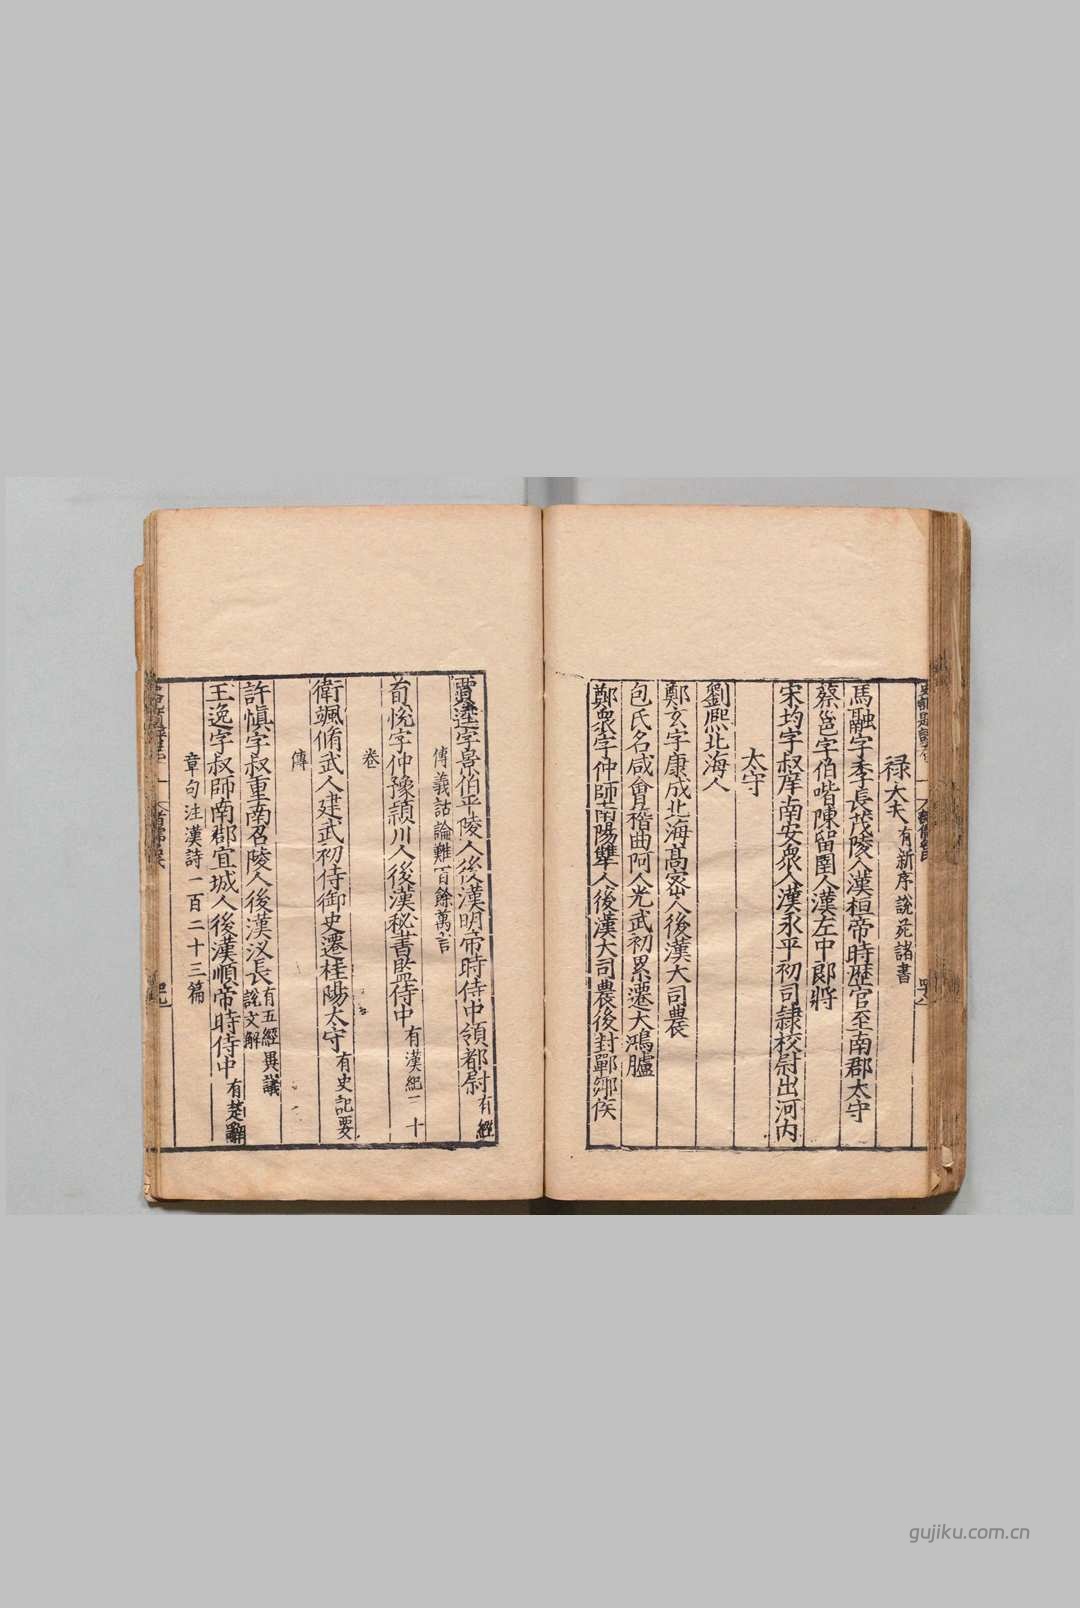 祿大夫有新序說苑諸書
馬融字季長茂陵人漢桓帝時歷官至南郡太守
蔡邕字伯喈陳留圉人漢左中郎將
宋均字叔庠南安眾人漢永平初司隸校尉出河內
太守
劉熈北海人
鄭玄字康成北海高密人後漢大司農
包氏名咸會稽曲阿人光武初累遷大鴻臚
鄭眾字仲師南陽犨人後漢大司農後封鄿鄉侯
賈逵字景伯平陵人後漢明帝時侍中領都尉有經
傳義詁論難百餘萬言
荀悅字仲豫潁川人後漢秘書監侍中有漢紀二十
卷
衛颯脩武人建武初侍御史遷桂陽太守有史記要
傳
許慎字叔重南召陵人後漢汶長有五經異議
說文解
王逸字叔師南郡宜城人後漢順帝時侍中有楚辭
章句注漢詩一百二十三篇
gujiku.com.cn